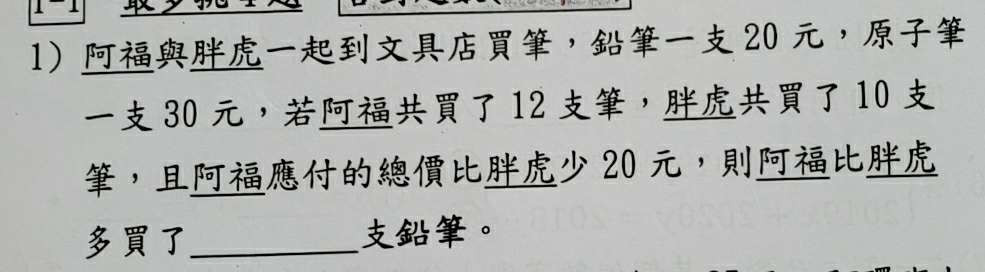 1) 阿福與胖虎一起到文具店買筆，鉛筆一支 20 元，原子筆
一支 30 元，若阿福共買了 12 支筆，胖虎共買了 10 支
筆，且阿福應付的總價比胖虎少 20 元，則阿福比胖虎
多買了__________支鉛筆。